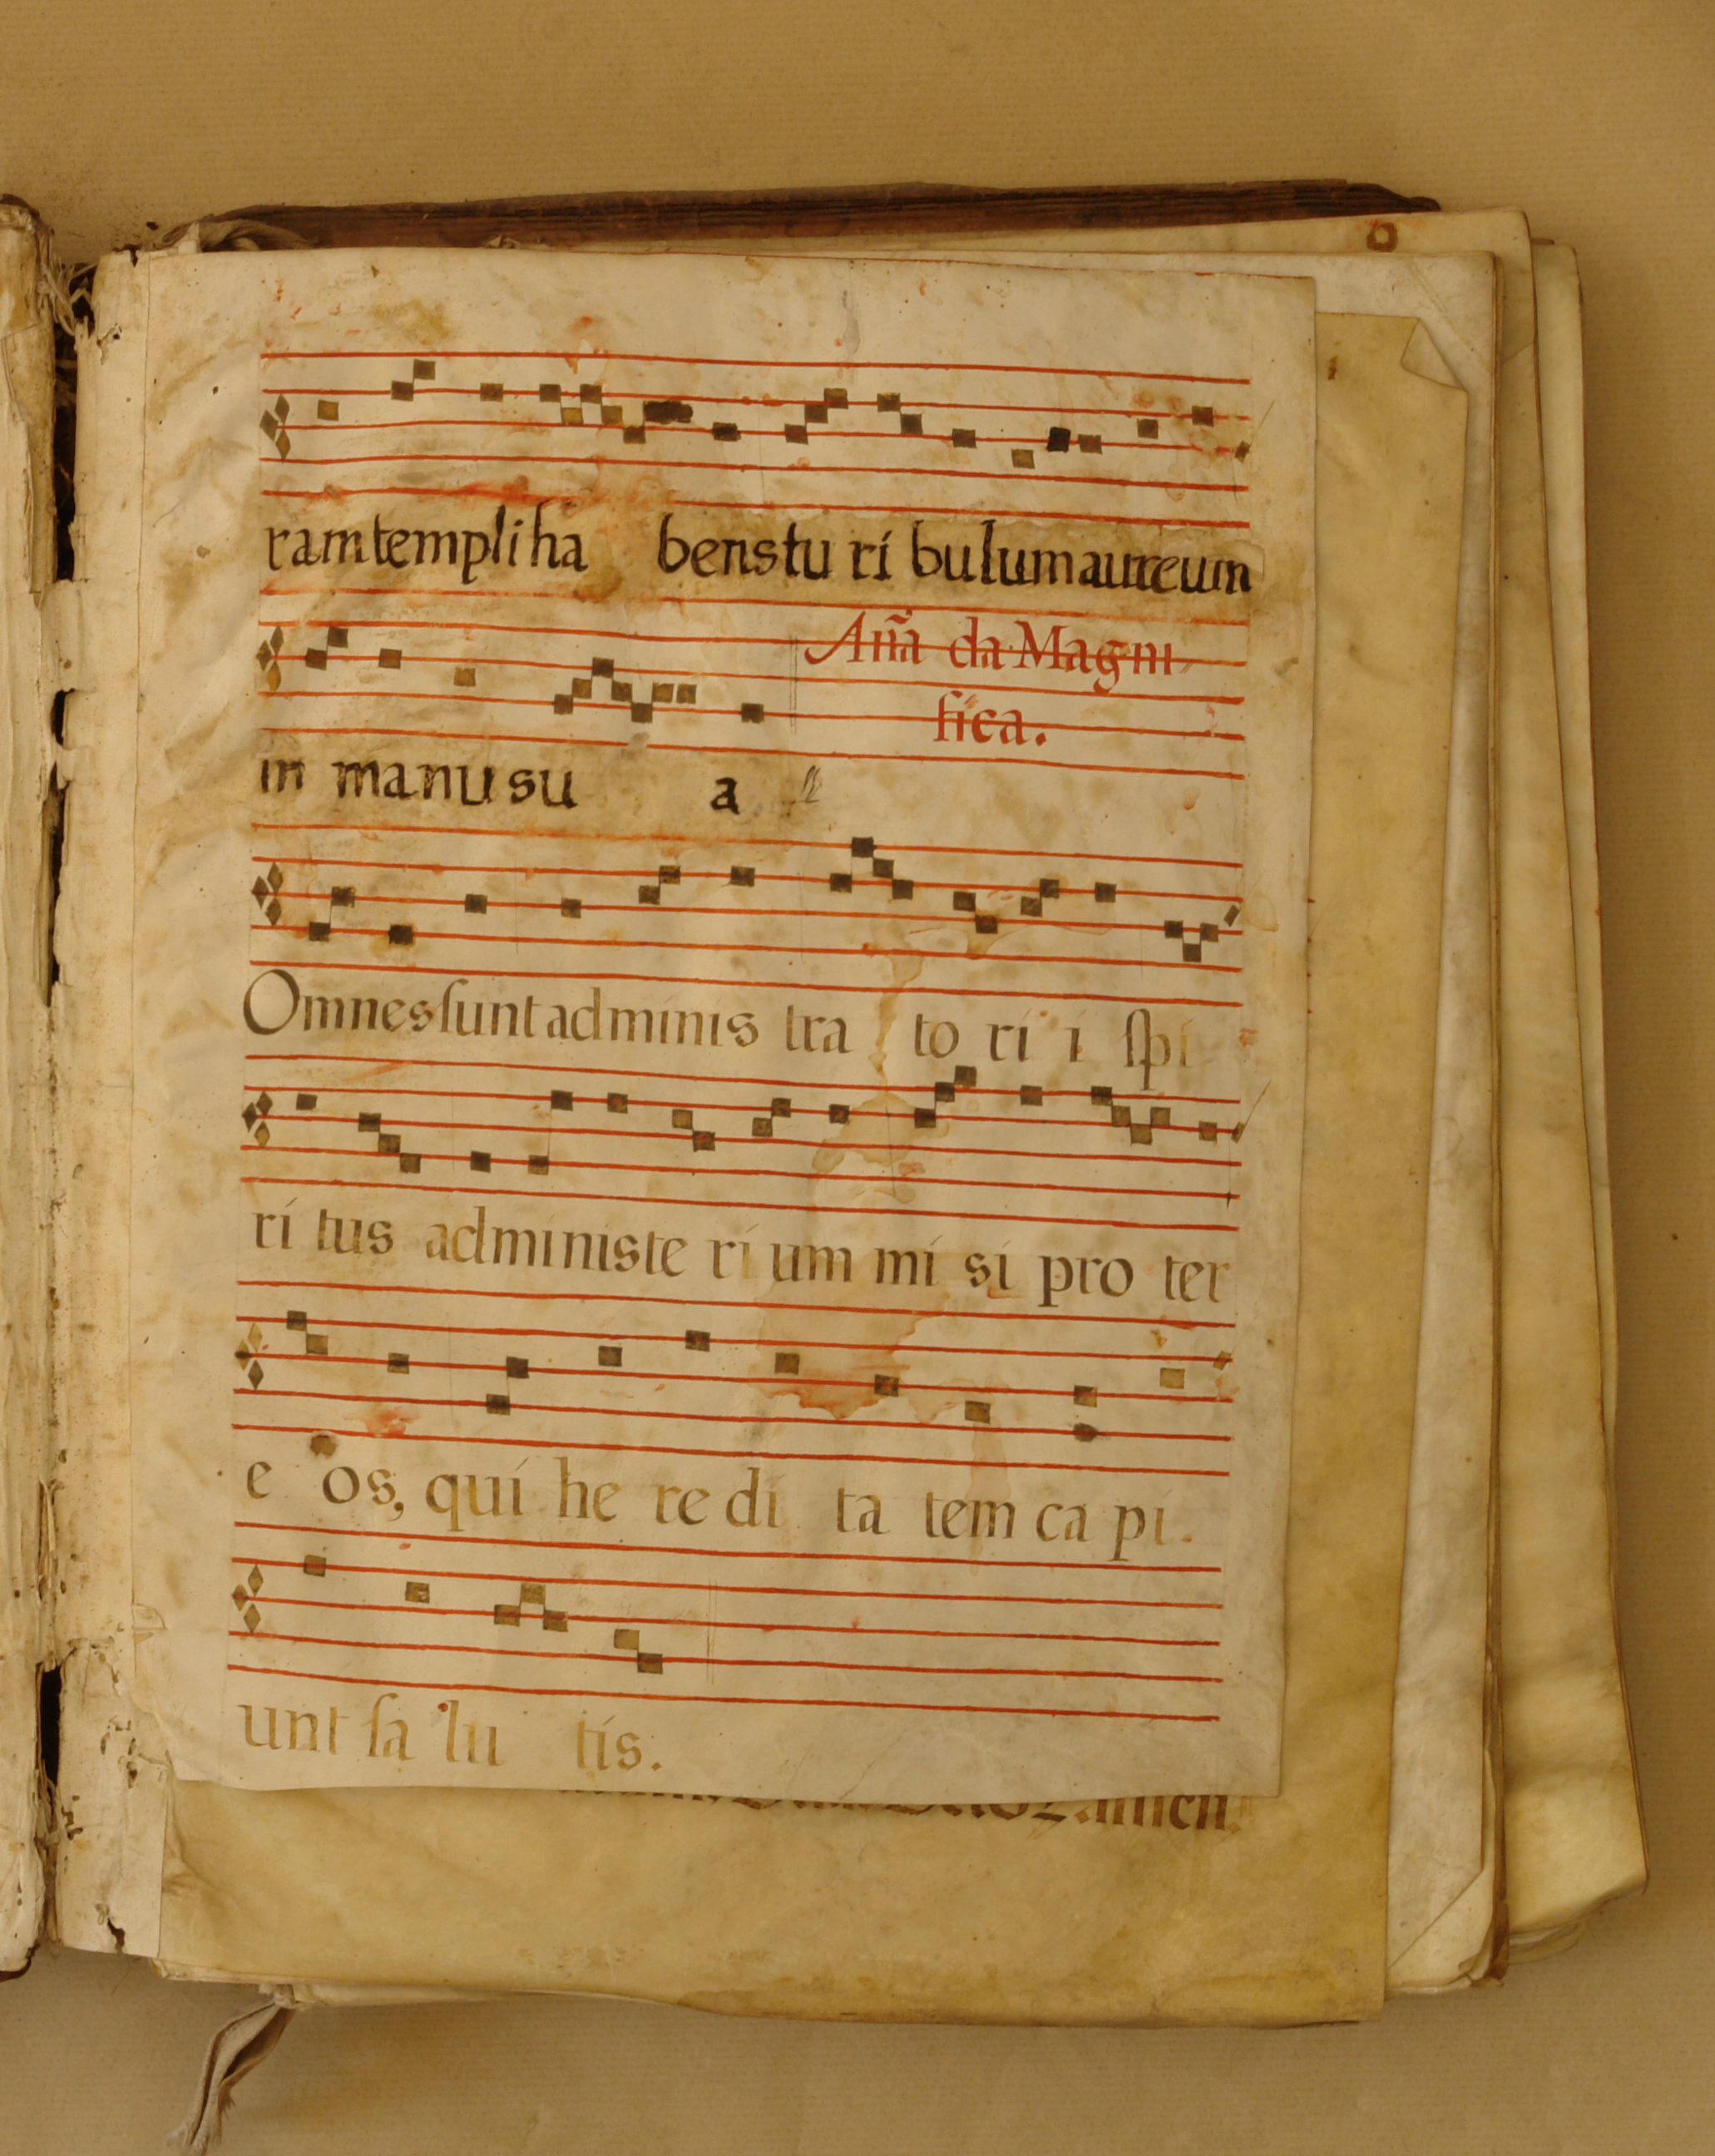 ramtempli ha benstu ri bulumaureum
Aña da Magni
fica.
in manusu a
Omnes ſunt adminis tra to ri i ſpi
ri tus administe ri um mi si pro ter
e os, qui he re di ta tem ca pi.
unt ſa lu tis.